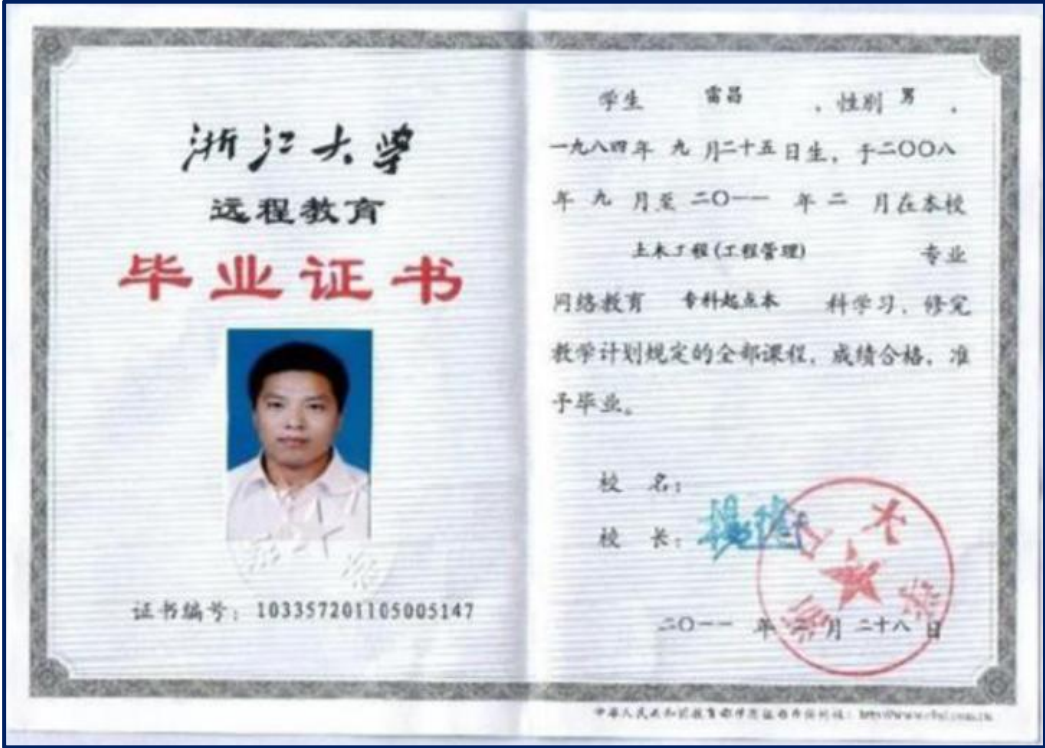 浙江大学
远程教育
毕业证书
证书编号：103357201105005147
学生 雷昌 ，性别 男 ，
一九八四年 九 月二十五日生，于二〇〇八
年 九 月至 二〇一一 年 二 月在本校
土木工程(工程管理) 专业
网络教育 专科起点本 科学习，修完
教学计划规定的全部课程，成绩合格，准
予毕业。
校 名：
校 长：
二〇一一 年 二 月 二十八 日
中华人民共和国教育部学历证书查询网址：